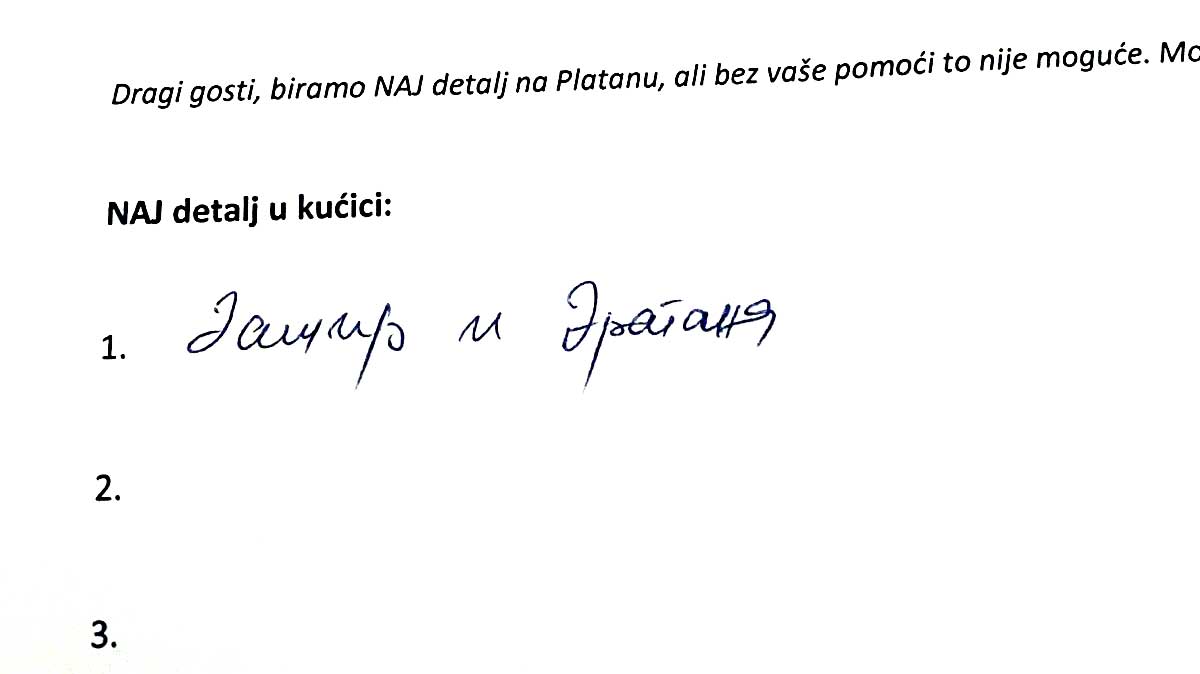 Dragi gosti, biramo NAJ detalj na Platanu, ali bez vaše pomoći to nije moguće.
NAJ detalj u kućici:
1. и Драгана
2.
3.